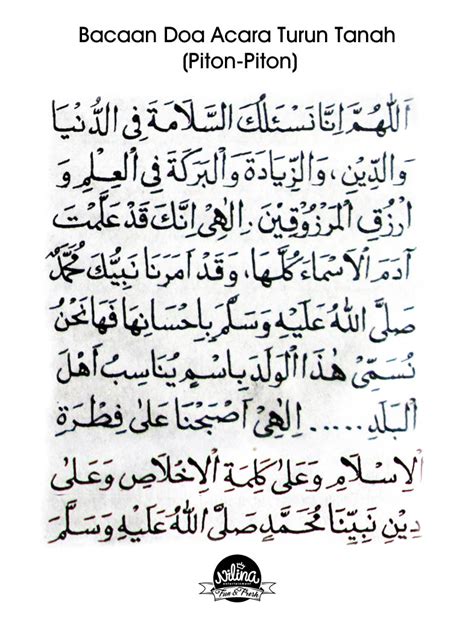 Bacaan Doa Acara Turun Tanah
(Piton-Piton)
اَللّٰهُمَّ اِنَّا نَسْئَلُكَ السَّلَامَةَ فِى الدُّنْيَا
وَالدِّيْنِ، وَالزِّيَادَةَ وَالْبَرَكَةَ فِى الْعِلْمِ وَ
اَرْزُقِ الْمَرْزُوْقِيْنَ. اِلٰهِىْ اِنَّكَ قَدْ عَلَّمْتَ
آدَمَ الْاَسْمَاءَ كُلَّهَا، وَقَدْ اَمَرَنَا نَبِيُّكَ مُحَمَّدٌ
صَلَّى اللّٰهُ عَلَيْهِ وَسَلَّمَ بِاِحْسَانِهَا فَهَانَحْنُ
نُسَمِّىْ هٰذَا الْوَلَدَ بِاسْمٍ يُنَاسِبُ اَهْلَ
الْبَلَدِ..... اِلٰهِىْ اَصْبَحْنَا عَلٰى فِطْرَةِ
الْاِسْلَامِ وَعَلٰى كَلِمَةِ الْاِخْلَاصِ وَعَلٰى
دِيْنِ نَبِيِّنَا مُحَمَّدٍ صَلَّى اللّٰهُ عَلَيْهِ وَسَلَّمَ
Nilina
entertainment
Fun & Fresh